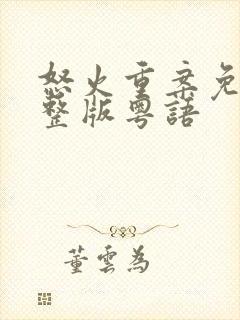 怒火重案免
整版粵語
董雲為